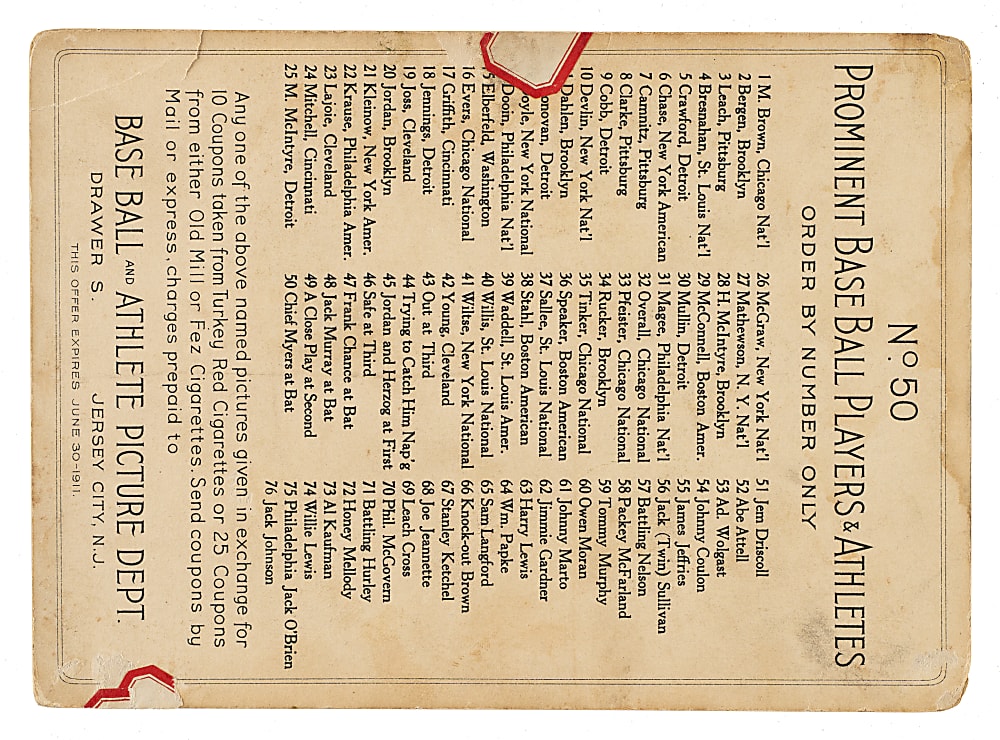 Nº 50
PROMINENT BASE BALL PLAYERS & ATHLETES
ORDER BY NUMBER ONLY
1 M. Brown, Chicago Nat'l
2 Bergen, Brooklyn
3 Leach, Pittsburg
4 Bresnahan, St. Louis Nat'l
5 Crawford, Detroit
6 Chase, New York American
7 Camnitz, Pittsburg
8 Clarke, Pittsburg
9 Cobb, Detroit
10 Devlin, New York Nat'l
Dahlen, Brooklyn
Detroit
New York National
Dooin, Philadelphia Nat'l
Elberfeld, Washington
16 Evers, Chicago National
17 Griffith, Cincinnati
18 Jennings, Detroit
19 Joss, Cleveland
20 Jordan, Brooklyn
21 Kleinow, New York Amer.
22 Krause, Philadelphia Amer.
23 Lajoie, Cleveland
24 Mitchell, Cincinnati
25 M. McIntyre, Detroit
26 McGraw, New York Nat'l
27 Mathewson, N. Y. Nat'l
28 H. McIntyre, Brooklyn
29 McConnell, Boston Amer.
30 Mullin, Detroit
31 Magee, Philadelphia Nat'l
32 Overall, Chicago National
33 Pfeister, Chicago National
34 Rucker, Brooklyn
35 Tinker, Chicago National
36 Speaker, Boston American
37 Sallee, St. Louis National
38 Stahl, Boston American
39 Waddell, St. Louis Amer.
40 Willis, St. Louis National
41 Wiltse, New York National
42 Young, Cleveland
43 Out at Third
44 Trying to Catch Him Nap'g
45 Jordan and Herzog at First
46 Safe at Third
47 Frank Chance at Bat
48 Jack Murray at Bat
49 A Close Play at Second
50 Chief Myers at Bat
51 Jem Driscoll
52 Abe Attell
53 Ad. Wolgast
54 Johnny Coulon
55 James Jeffries
56 Jack (Twin) Sullivan
57 Battling Nelson
58 Packey McFarland
59 Tommy Murphy
60 Owen Moran
61 Johnny Marto
62 Jimmie Gardner
63 Harry Lewis
64 Wm. Papke
65 Sam Langford
66 Knock-out Brown
67 Stanley Ketchel
68 Joe Jeannette
69 Leach Cross
70 Phil. McGovern
71 Battling Hurley
72 Honey Mellody
73 Al Kaufman
74 Willie Lewis
75 Philadelphia Jack O'Brien
76 Jack Johnson
Any one of the above named pictures given in exchange for
10 Coupons taken from Turkey Red Cigarettes or 25 Coupons
from either Old Mill or Fez Cigarettes. Send coupons by
Mail or express, charges prepaid to
BASE BALL AND ATHLETE PICTURE DEPT.
DRAWER S. JERSEY CITY, N.J.
THIS OFFER EXPIRES JUNE 30-1911.